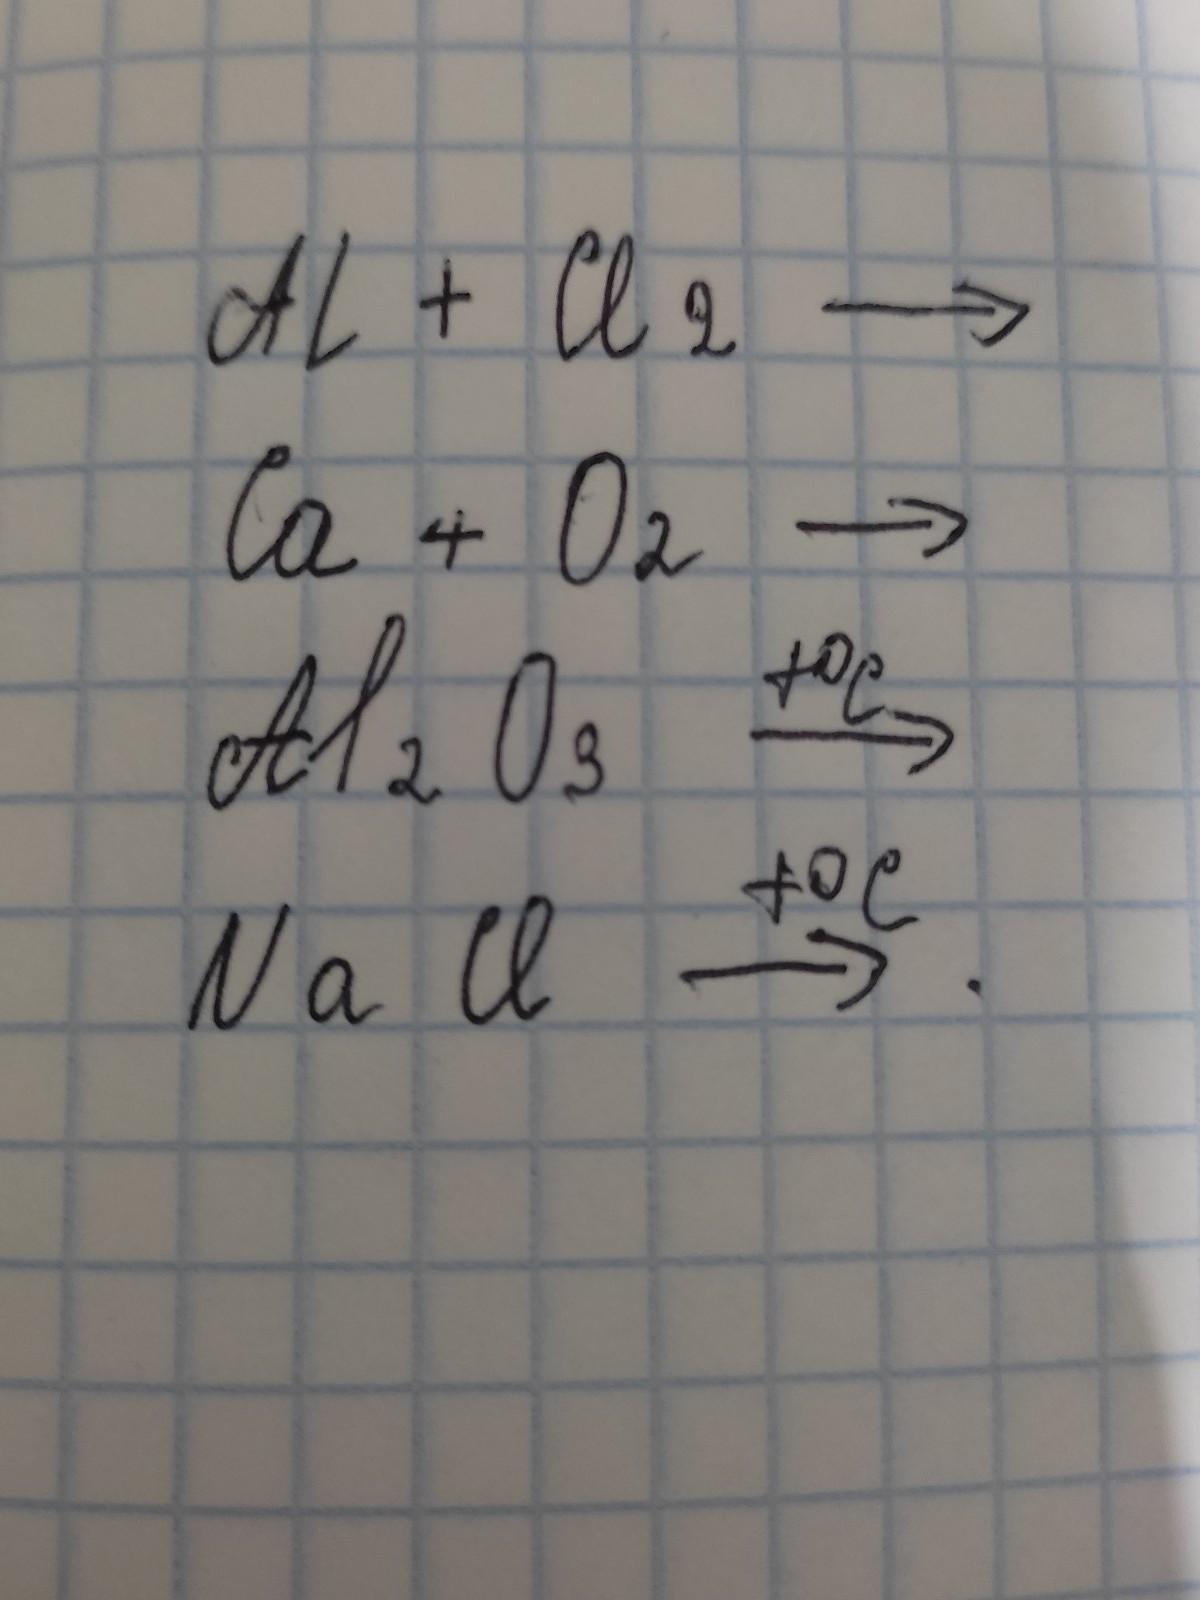 Al + Cl2 →
Ca + O2 →
Al2O3 +°C →
NaCl +°C → .